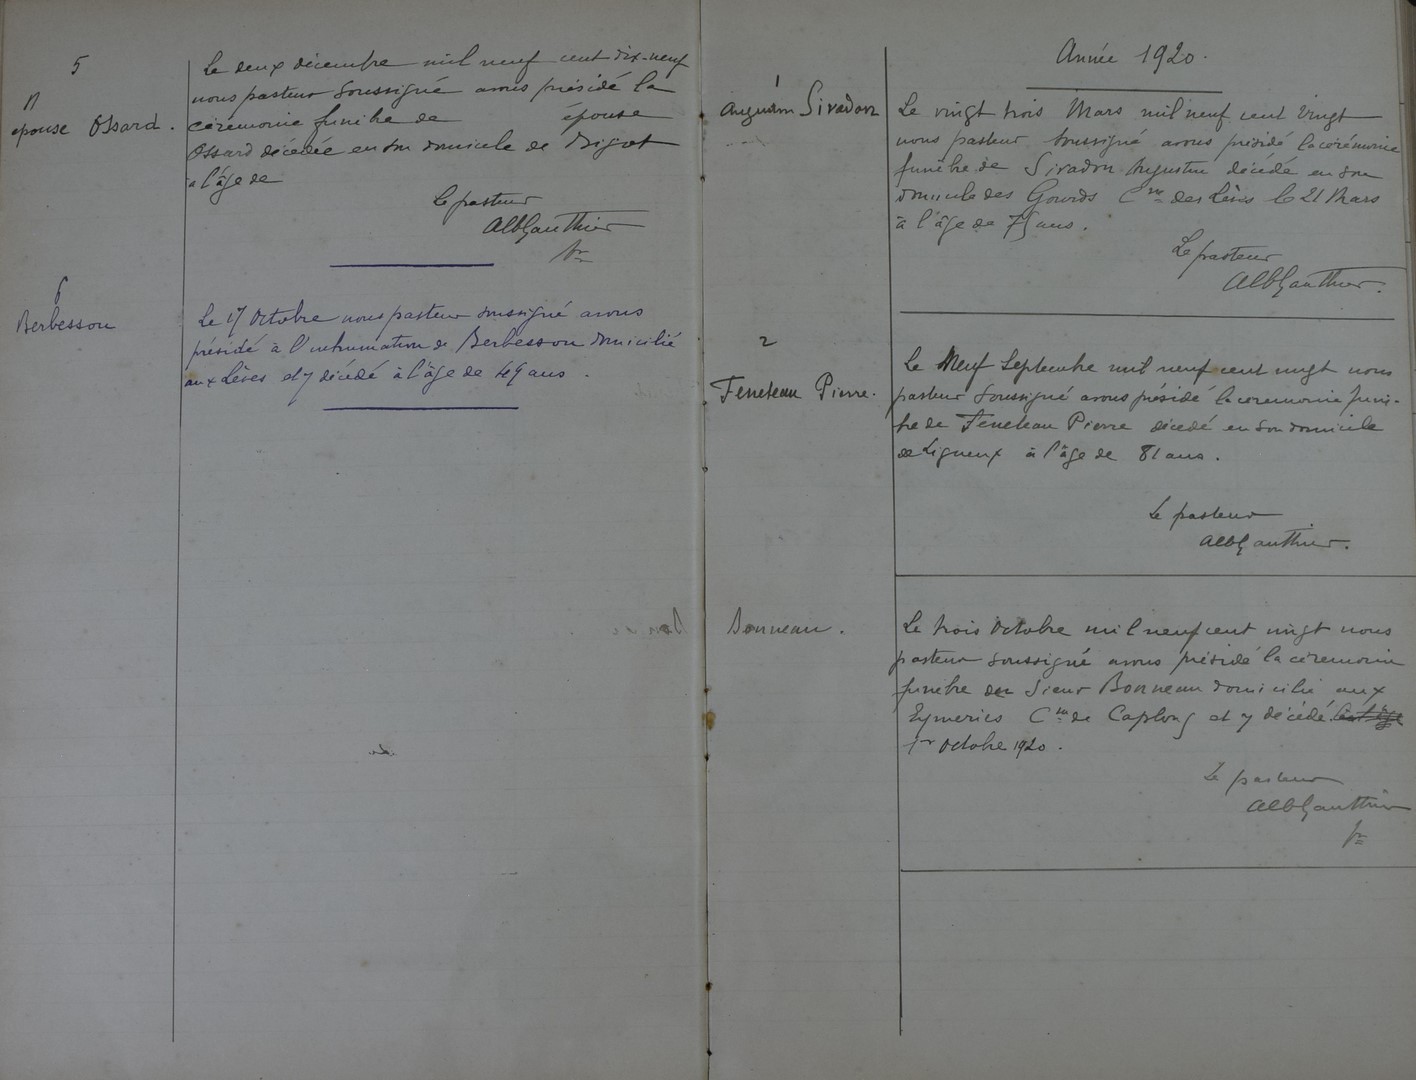 5
N
épouse Ossard.
Le deux décembre mil neuf cent dix-neuf
nous pasteur soussigné avons présidé la
cérémonie funèbre de épouse
Ossard décédée en son domicile de Bigot
à l'âge de
Le pasteur
AlbGauthier
pr
6
Berbesson
Le 17 Octobre nous pasteur soussigné avons
présidé à l'inhumation de Berbesson domicilié
aux Lèves et y décédé à l'âge de 49 ans.
Année 1920.
1
Augustin Sivadon
Le vingt trois Mars mil neuf cent vingt
nous pasteur soussigné avons présidé la cérémonie
funèbre de Sivadon Augustin décédé en son
domicile des Gourds Cne des Lèves le 21 Mars
à l'âge de 75 ans.
Le pasteur
AlbGauthier.
2
Feneteau Pierre.
Le Neuf Septembre mil neuf cent vingt nous
pasteur soussigné avons présidé la cérémonie funè-
bre de Feneteau Pierre décédé en son domicile
de Ligneux à l'âge de 81 ans.
Le pasteur
AlbGauthier.
Bonneau.
Le trois Octobre mil neuf cent vingt nous
pasteur soussigné avons présidé la cérémonie
funèbre du Sieur Bonneau domicilié aux
Eymeries Cne de Caplong et y décédé
1er Octobre 1920.
Le pasteur
AlbGauthier
pr